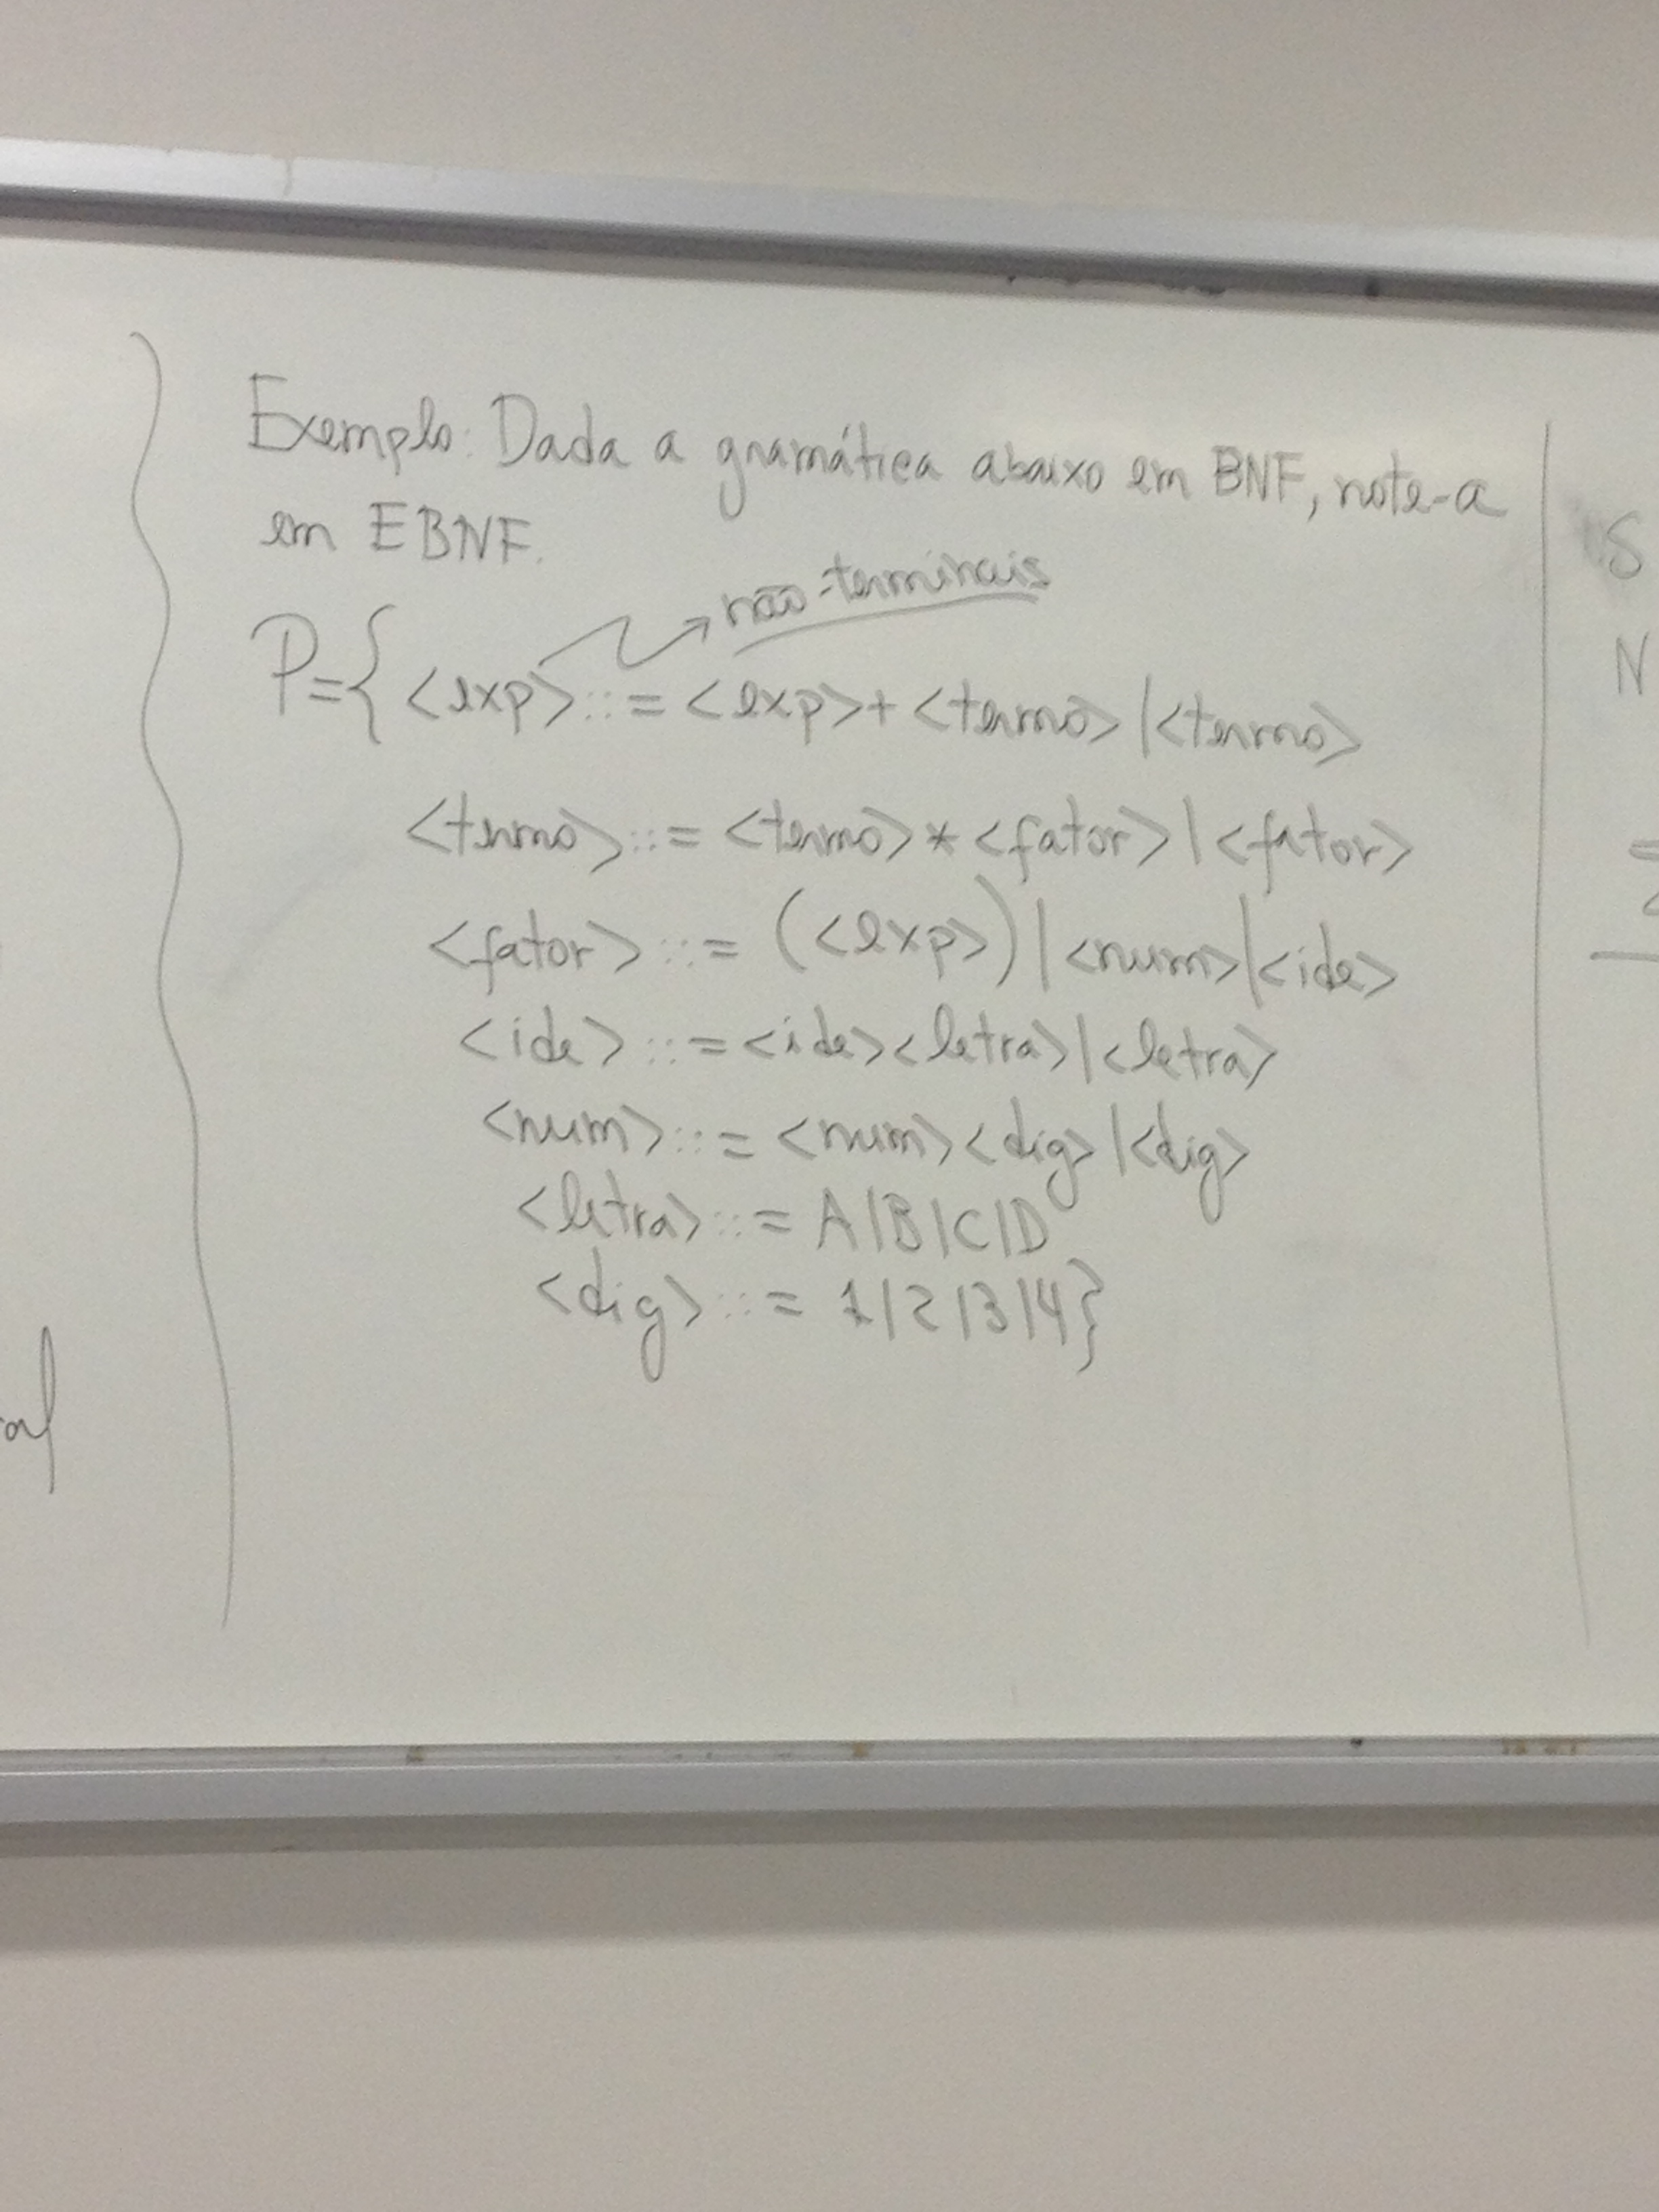 Exemplo: Dada a gramática abaixo em BNF, note-a
em EBNF.
não-terminais
P={ <exp>::= <exp>+<termo>|<termo>
<termo>::= <termo>*<fator>|<fator>
<fator>::= (<exp>)|<num>|<ide>
<ide>::=<ide><letra>|<letra>
<num>::= <num><dig>|<dig>
<letra>::= A|B|C|D
<dig>::= 1|2|3|4}
S
N